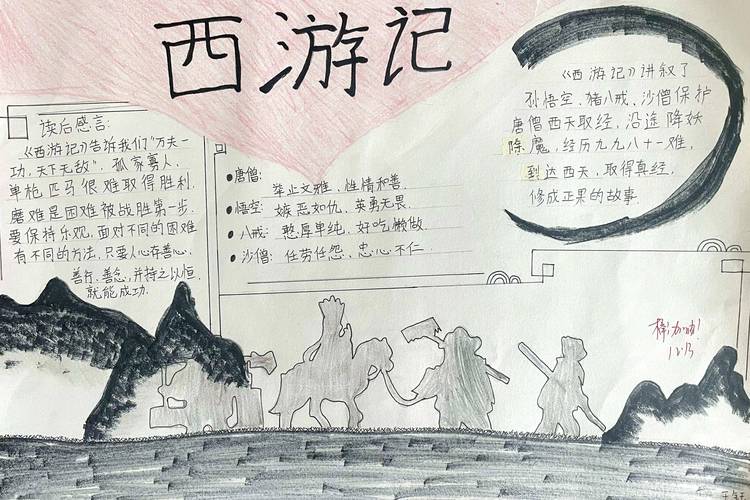 西游记
读后感言:
《西游记》告诉我们“万夫一
功,天下无敌”,孤家寡人、
单枪匹马很难取得胜利.
磨难是困难被战胜第一步.
要保持乐观,面对不同的困难
有不同的方法,只要人心存善心、
善行、善念,并持之以恒,
就能成功.
●唐僧: 举止文雅,性情和善.
●悟空: 嫉恶如仇、英勇无畏.
●八戒: 憨厚单纯、好吃懒做.
●沙僧: 任劳任怨、忠心不仁.
《西游记》讲叙了
孙悟空、猪八戒、沙僧保护
唐僧西天取经,沿途降妖
除魔,经历九九八十一难,
到达西天,取得真经,
修成正果的故事.
棒!加油!